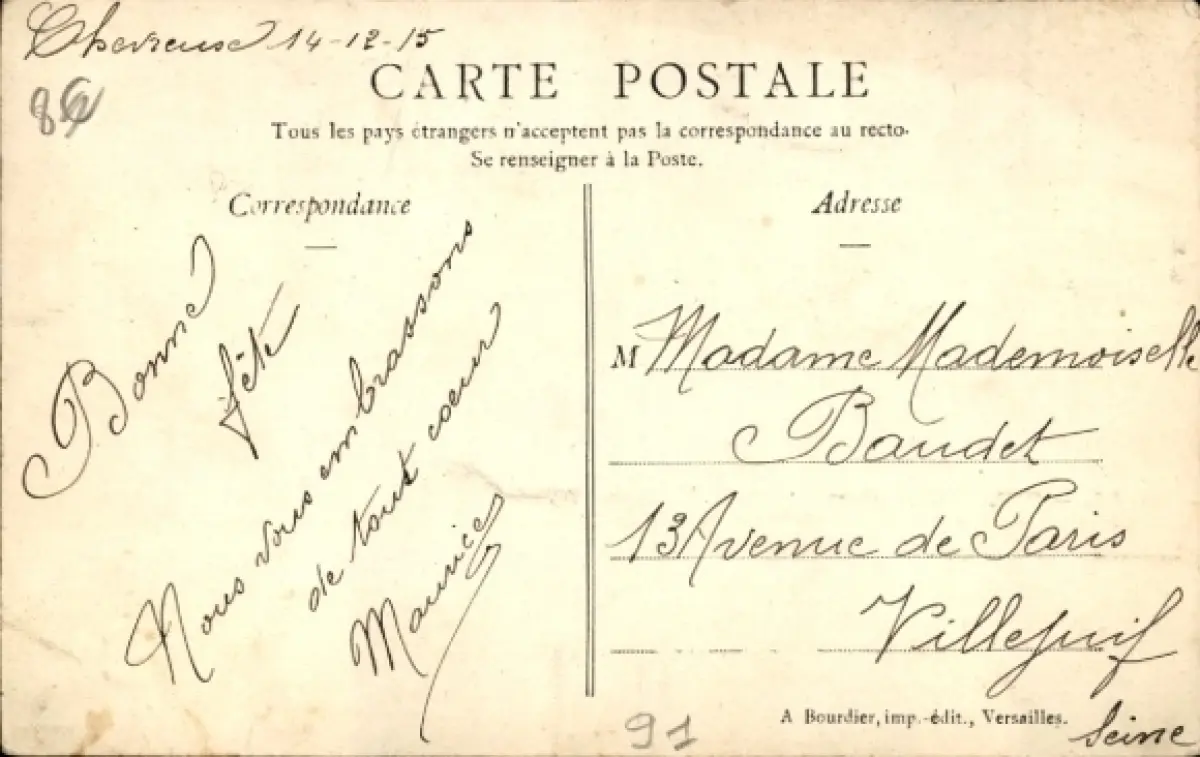 Chevreuse 14-12-15
86
CARTE POSTALE
Tous les pays étrangers n'acceptent pas la correspondance au recto.
Se renseigner à la Poste.
Correspondance
Bonne
fête
Nous vous embrassons
de tout coeur
Maurice
Adresse
M Madame Mademoiselle
Baudet
13 Avenue de Paris
Villejuif
Seine
A Bourdier, imp.-édit., Versailles.
91